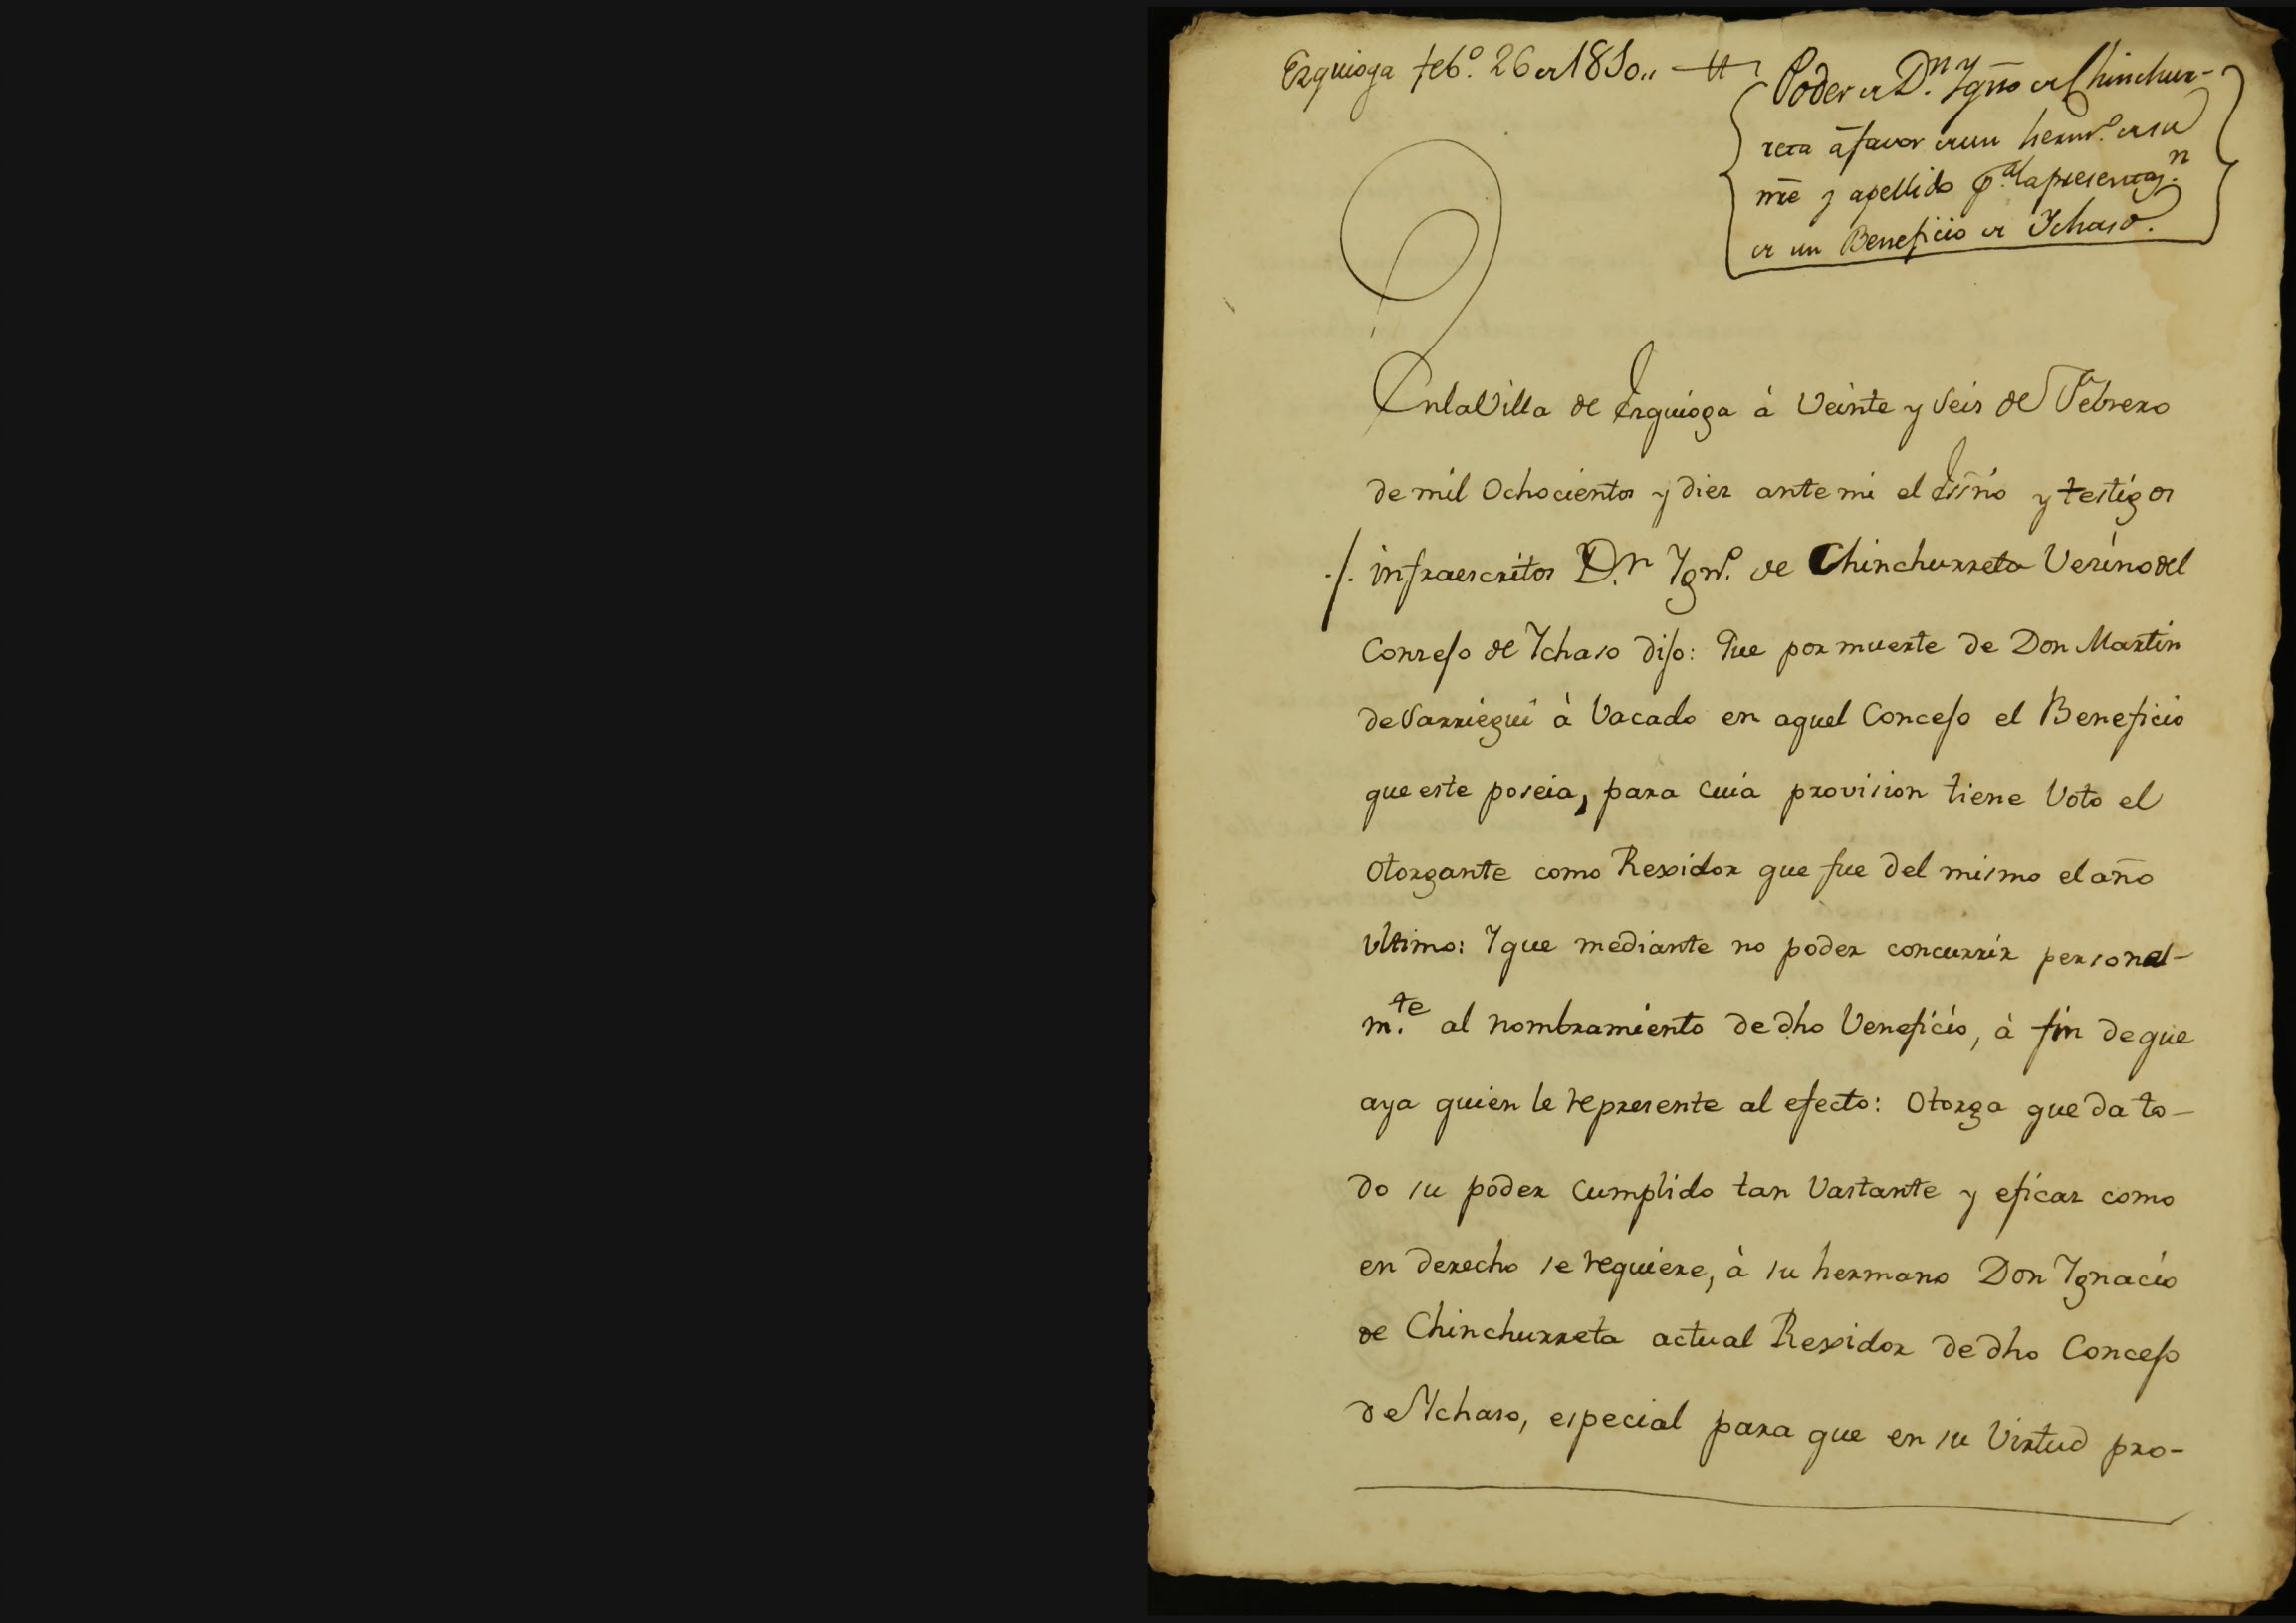 Ezquioga feb.º 26 de 1810,,
Poder de D.n Ygño de Chinchur-
reta â favor de un herm.º de su
nr̃e y apellido p.a la presentaz.n
de un Beneficio de Ychaso.
En la Villa de Ezquioga à Veinte y Seis de Febrero
de mil Ochocientos y diez ante mi el Essño y testigos
./. infraescritos D.n Ygn.º de Chinchurreta Vezino del
Conzejo de Ychaso dijo: Que por muerte de Don Martin
de Sarriegui à Vacado en aquel Concejo el Beneficio
que este poseia, para cuia provision tiene Voto el
Otorgante como Rexidor que fue del mismo el año
ultimo: Y que mediante no poder concurrir personal-
m.te al nombramiento de dho Veneficio, à fin de que
aya quien le represente al efecto: Otorga que da to-
do su poder cumplido tan Vastante y eficaz como
en derecho se requiere, à su hermano Don Ygnacio
de Chinchurreta actual Rexidor de dho Concejo
de Ychaso, especial para que en su Virtud pro-